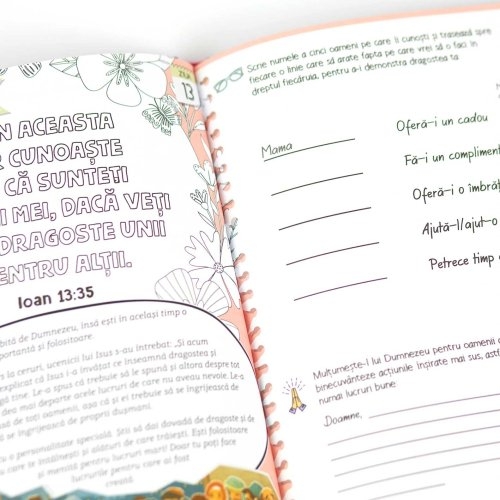 ZIUA
13
N ACEASTA
CUNOAȘTE
CĂ SUNTEȚI
I MEI, DACĂ VEȚI
DRAGOSTE UNII
ENTRU ALȚII.
Ioan 13:35
bită de Dumnezeu, însă ești în același timp o
portantă și folositoare.
s la ceruri, ucenicii lui Isus s-au întrebat: „Și acum
explicat că Isus i-a învățat ce înseamnă dragostea și
gă tine. Le-a spus că trebuie să le spună și altora despre tot
dea mai departe acele lucruri de care au avut nevoie. Le-a
să de toți oamenii, așa că și ei trebuie să se îngrijească de
se îngrijească de proprii dușmani.
u o personalitate specială. Știi să dai dovadă de dragoste și de
cu care te întâlnești și alături de care trăiești. Ești folositoare
și menită pentru lucruri mari! Doar tu poți face
lucrurile pentru care ai fost
creată.
Scrie numele a cinci oameni pe care îi cunoști și trasează spre
fiecare o linie care să arate fapta pe care vrei să o faci în
dreptul fiecăruia, pentru a-i demonstra dragostea ta.
Mama
Oferă-i un cadou
Fă-i un compliment
Oferă-i o îmbrăț
Ajută-l/ajut-o
Petrece timp
Mulțumește-I lui Dumnezeu pentru oamenii
binecuvânteze acțiunile înșirate mai sus, astf
numai lucruri bune.
Doamne,